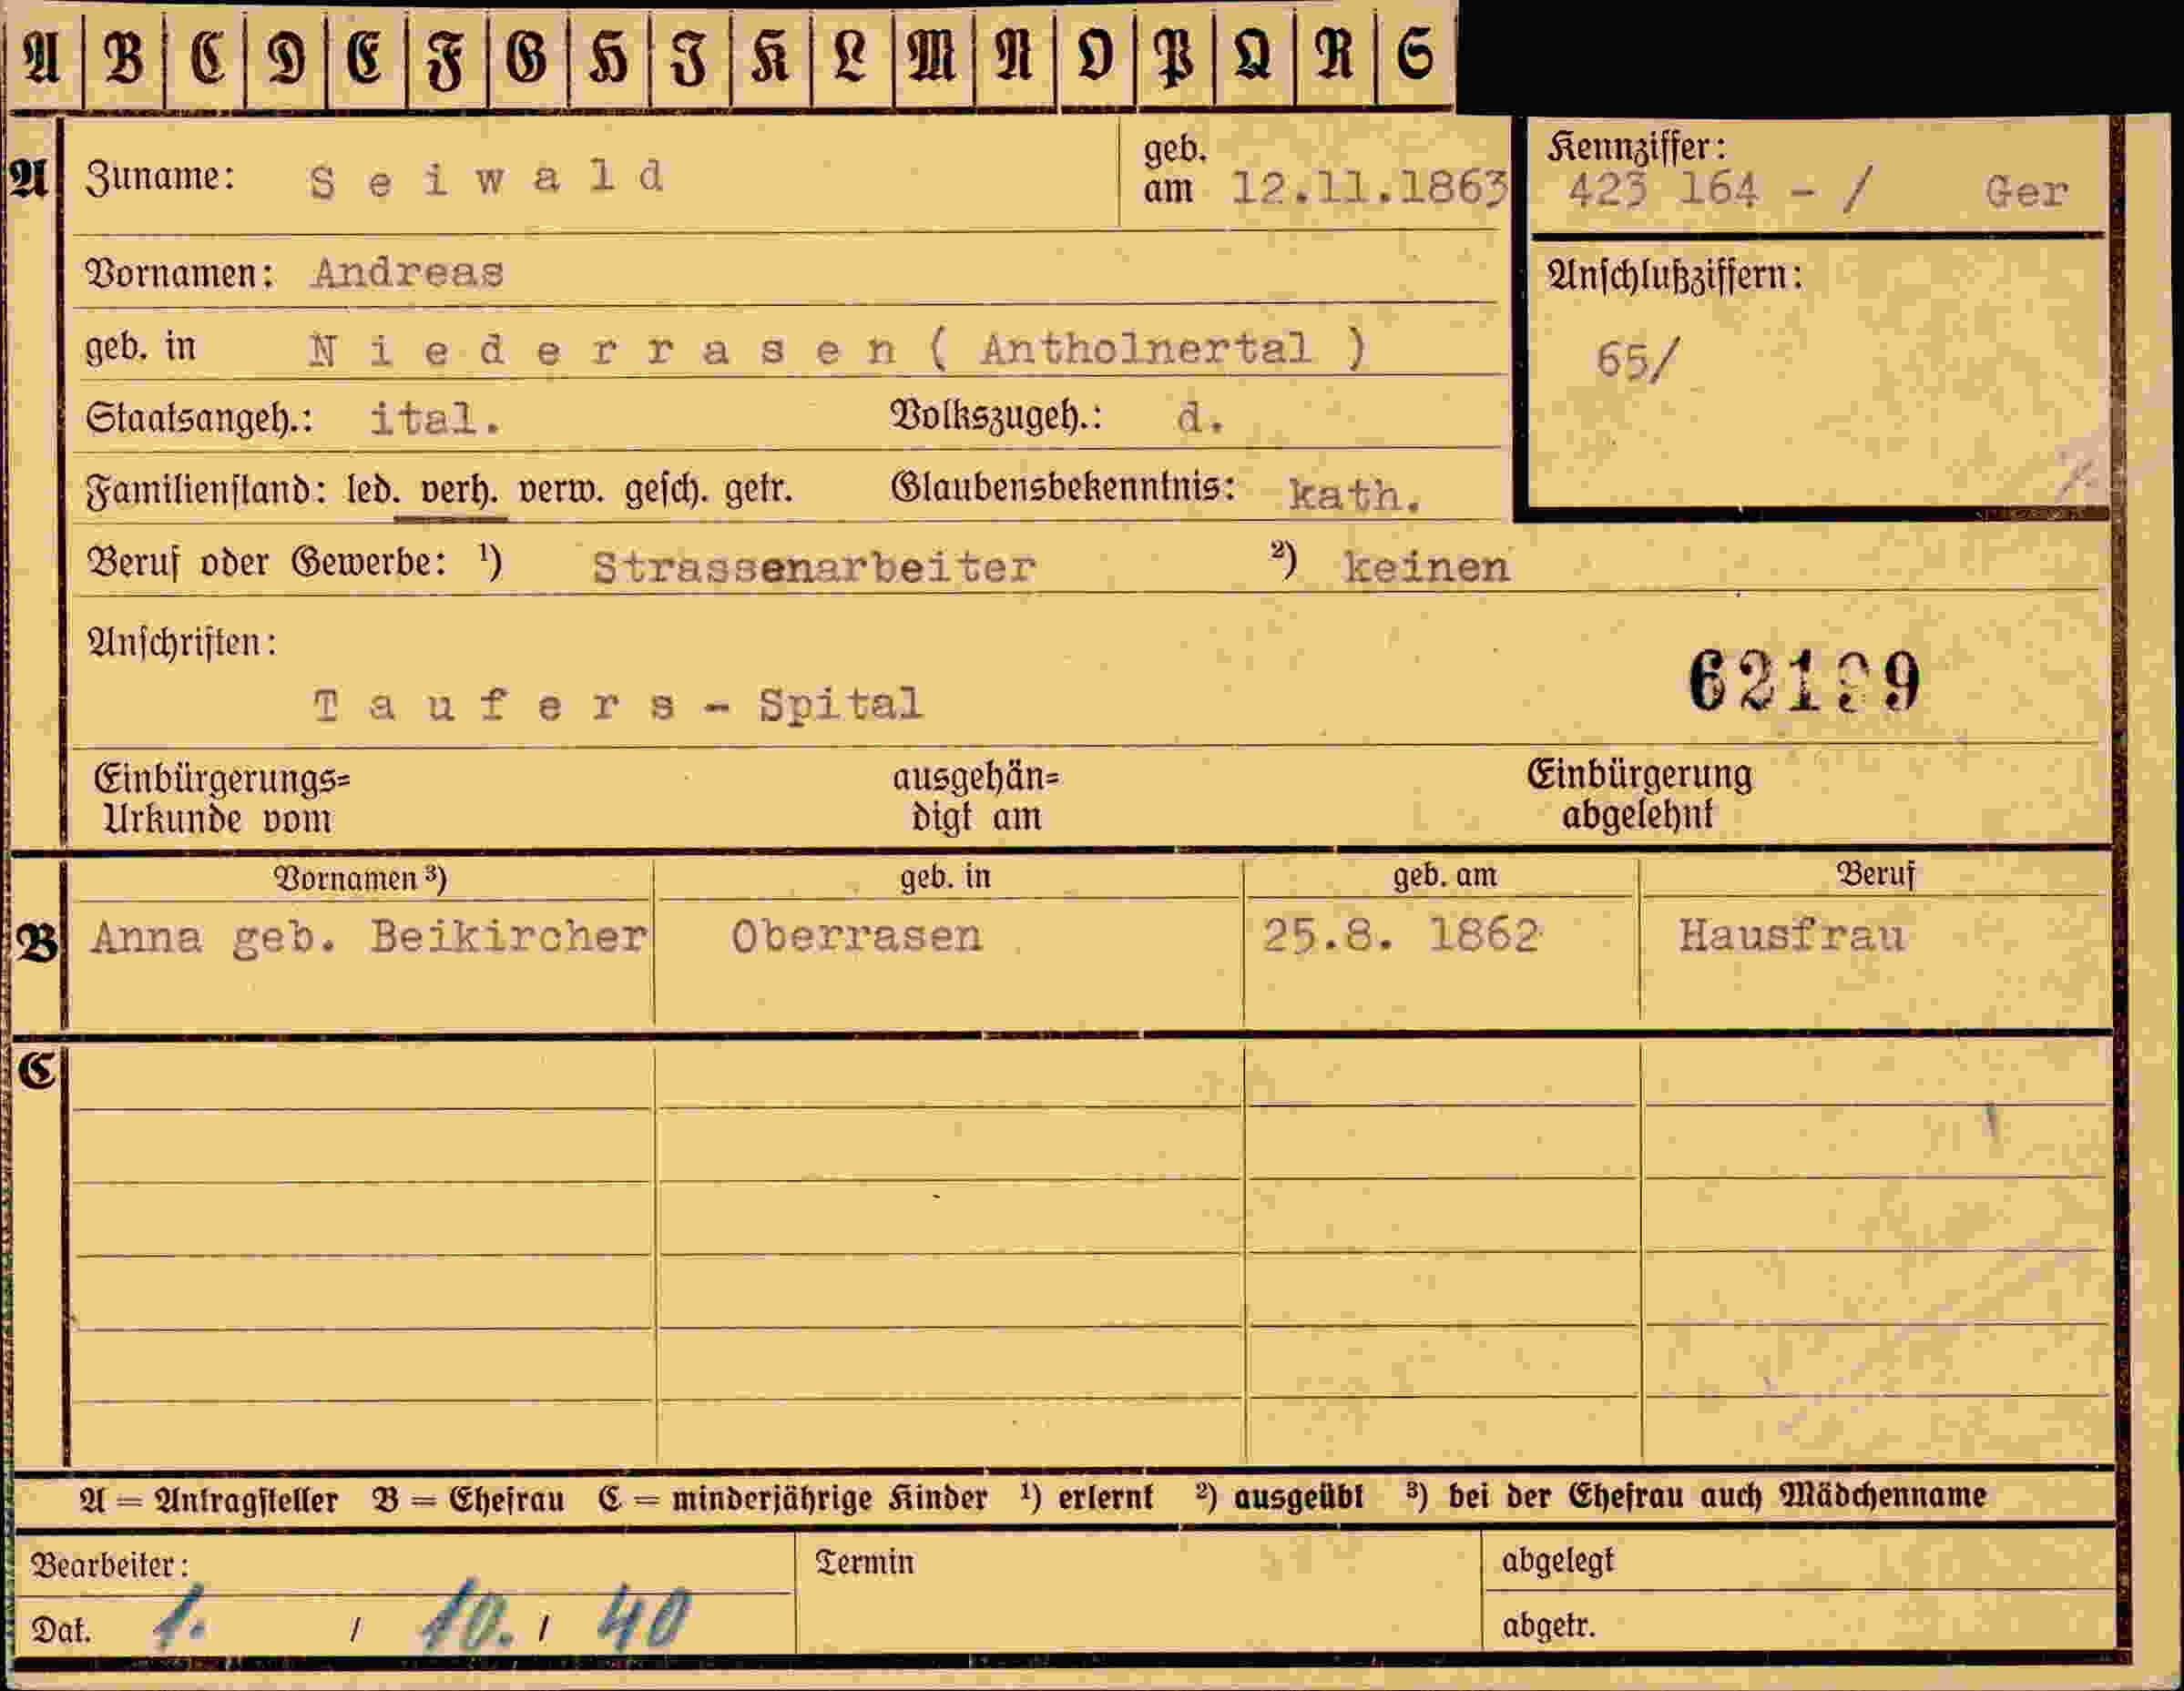 A B C D E F G H I K L M N O P Q R S
A Zuname: Seiwald geb. am 12.11.1863
Kennziffer: 423 164 - / Ger
Vornamen: Andreas
Anschlußziffern:
geb. in Niederrasen ( Antholnertal )
65/
Staatsangeh.: ital. Volkszugeh.: d.
Familienstand: led. verh. verw. gesch. getr. Glaubensbekenntnis: kath.
Beruf oder Gewerbe: ¹) Strassenarbeiter ²) keinen
Anschriften:
Taufers - Spital
Einbürgerungs= ausgehän= Einbürgerung
Urkunde vom digt am abgelehnt
Vornamen ³) geb. in geb. am Beruf
B Anna geb. Beikircher Oberrasen 25.8. 1862 Hausfrau
C
A = Antragsteller B = Ehefrau C = minderjährige Kinder ¹) erlernt ²) ausgeübt ³) bei der Ehefrau auch Mädchenname
Bearbeiter: Termin abgelegt
Dat. 1. / 10. / 40 abgetr.